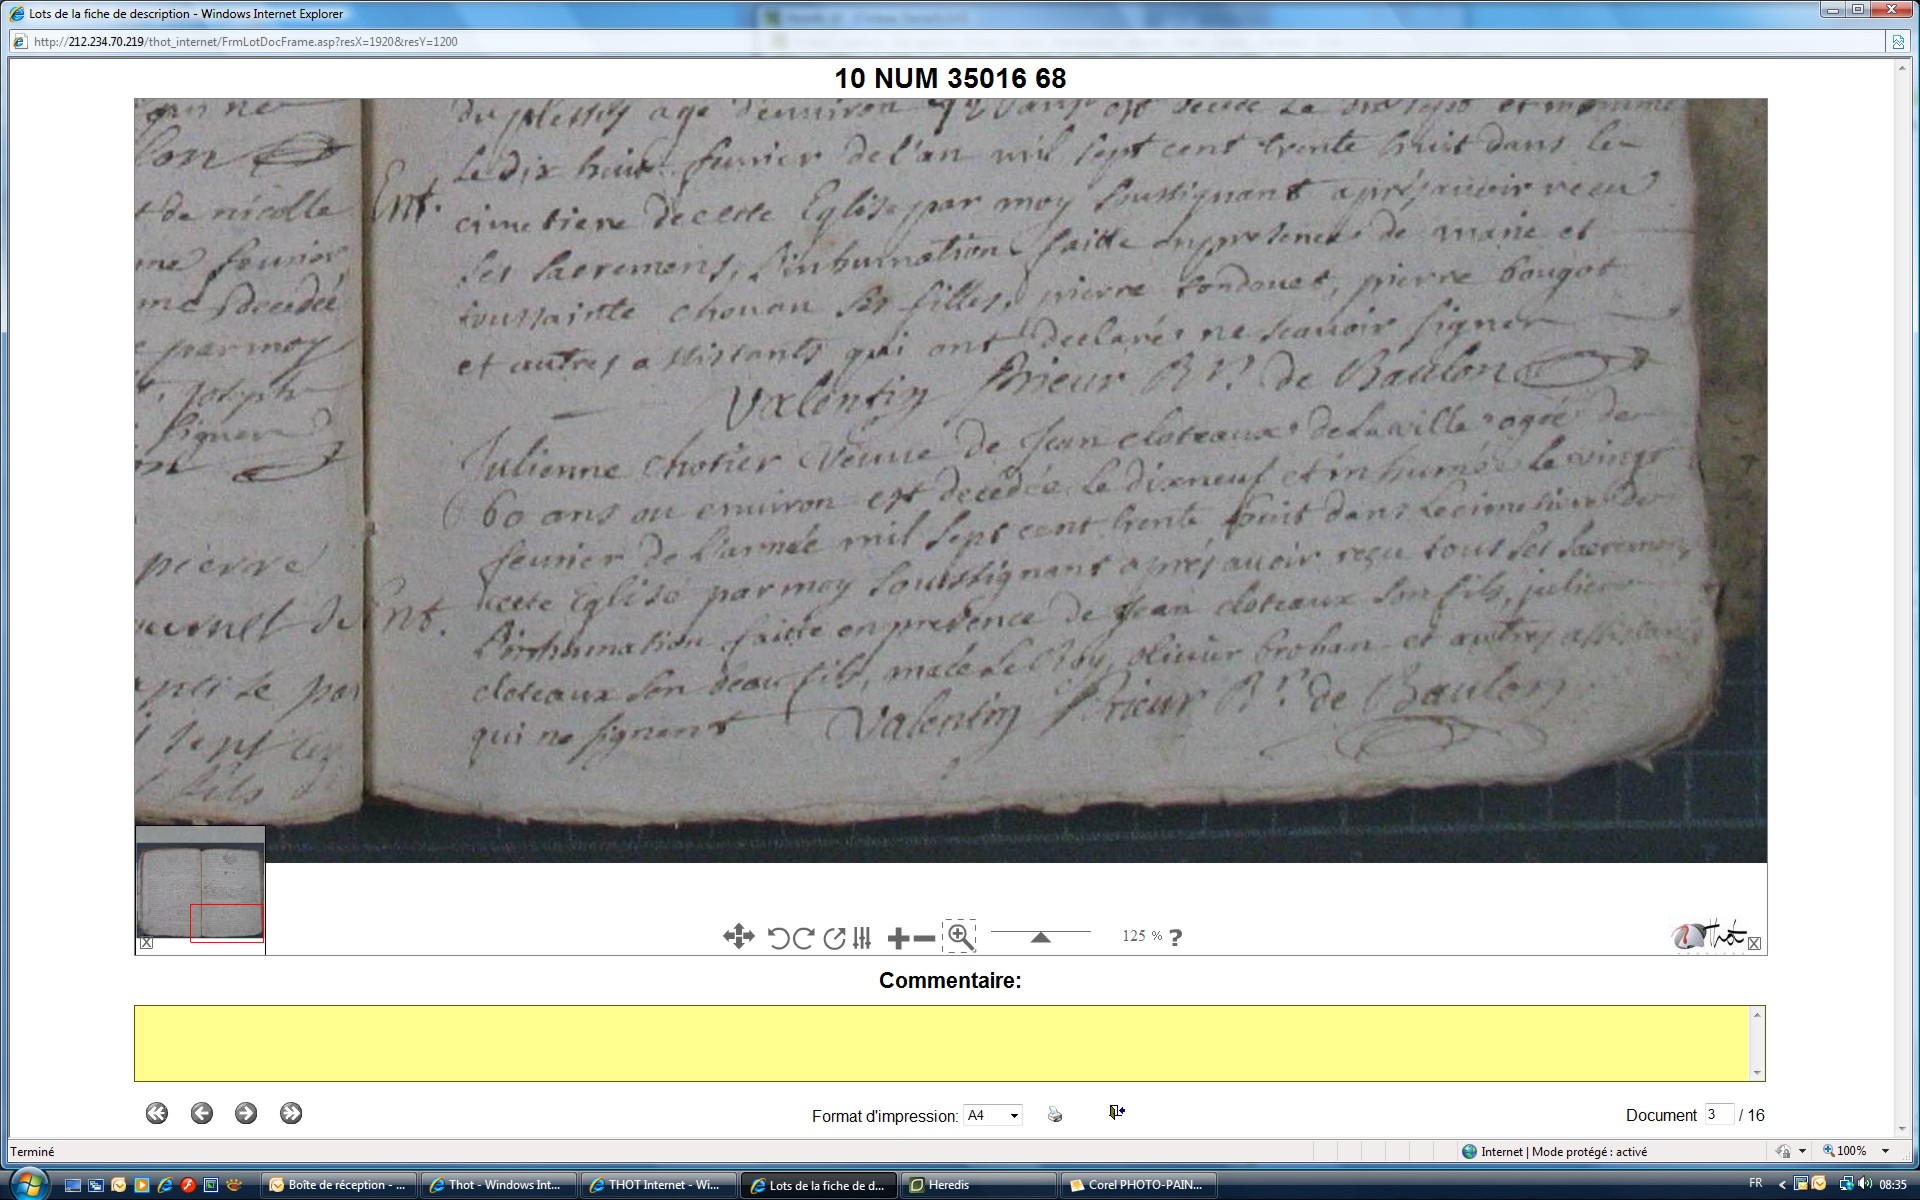 Lots de la fiche de description - Windows Internet Explorer
http://212.234.70.219/thot_internet/FrmLotDocFrame.asp?resX=1920&resY=1200
10 NUM 35016 68
lon
t de nicolle
me feuvrier
me decedée
par moy
Joseph
signer
pierre
du plessis agé d'environ
Le dix huit fevrier de l'an mil sept cent trente huit dans le
Ent.
cimetiere de cette Eglise par moy soussignant apres avoir receu
ses sacremens, l'inhumation faitte en presence de marie et
toussainte chouan ses filles, pierre tondouet, pierre bougot
et autres assistants qui ont declarés ne scauoir signer
Valentin Prieur Rr. de Baulon
Julienne chotier Veuue de Jean cloteaux de la ville ogée de
60 ans ou environ est decedée le dixneuf et inhumée le vingt
feurier de l'année mil sept cent trente huit dans le cimetiere de
cette Eglise par moy soussignant apres avoir reçu tous ses sacremens
Ent.
L'inhumation faitte en presence de Jean cloteaux son fils, julien
cloteaux son beau fils, macé Le Roy, olivier brohan et autres assistans
qui ne signent
Valentin Prieur Rr. de Baulon
125 % ?
Thot
Commentaire:
Format d'impression: A4
Document 3 / 16
Terminé
Internet | Mode protégé : activé
100%
Boîte de réception - ...
Thot - Windows Int...
THOT Internet - Wi...
Lots de la fiche de d...
Heredis
Corel PHOTO-PAIN...
FR
08:35